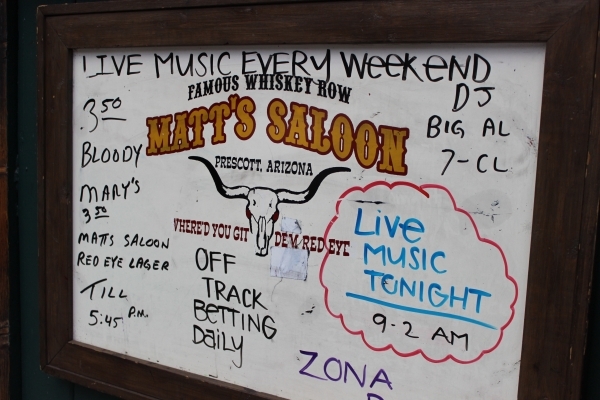 LIVE MUSIC EVERY WEEKEND
FAMOUS WHISKEY ROW
MATT'S SALOON
PRESCOTT, ARIZONA
WHERE'D YOU GIT RED EYE
3 50
BLOODY
MARY'S
3 50
MATTS SALOON
RED EYE LAGER
TILL
5:45 P.M.
OFF
TRACK
BETTING
DAILY
DJ
BIG AL
7-CL
Live
MUSIC
TONIGHT
9-2 AM
ZONA